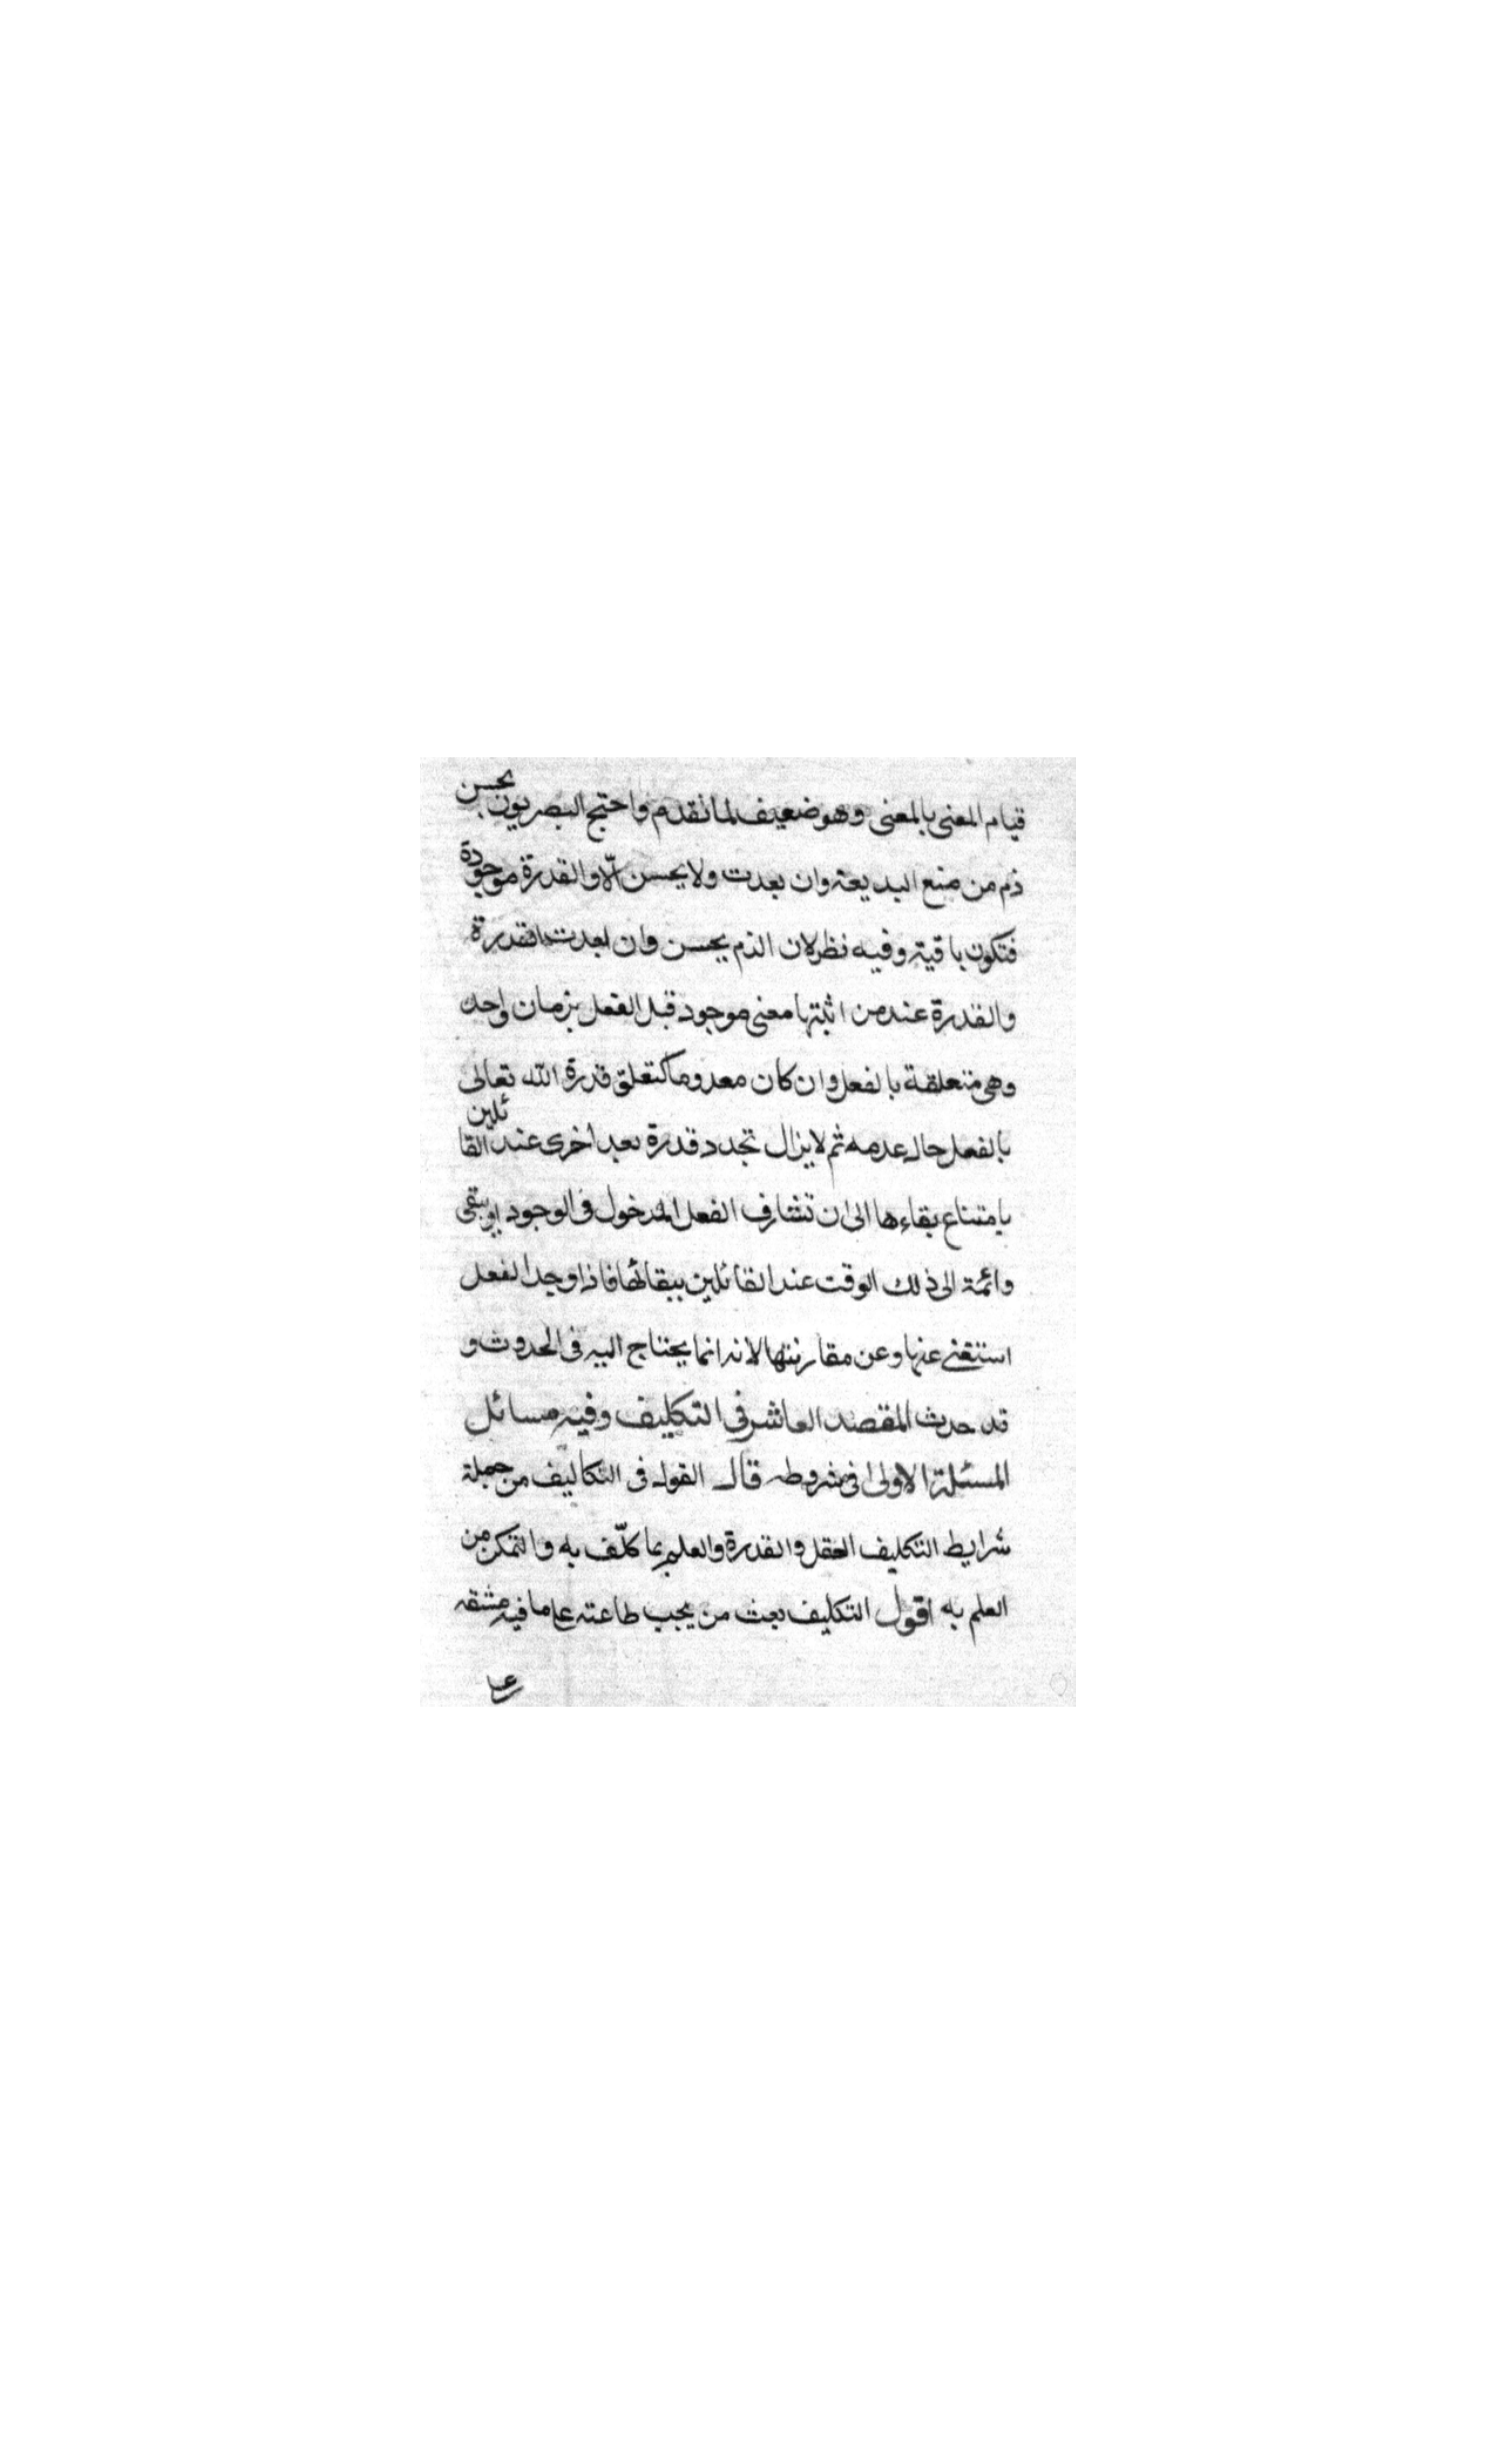 قيام المعنى بالمعنى وهو ضعيف لما تقدم واحتج البصريون بحسن
ذم من منع البديعة وان بعدت ولا يحسن الّا والقدرة موجودة
فتكون باقية وفيه نظر لان الذم يحسن وان بعدت القدرة
والقدرة عند من اثبتها معنى موجود قبل الفعل بزمان واحد
وهى متعلقة بالفعل وان كان معدوما كتعلق قدرة الله تعالى
بالفعل حال عدمه ثم لا يزال تجدد قدرة بعد اخرى عند القائلين
بامتناع بقاءها الى ان تشارف الفعل الدخول فى الوجود او يبقى
دائمة الى ذلك الوقت عند القائلين ببقائها فاذا وجد الفعل
استغنى عنها وعن مقارنتها لانه انما يحتاج اليه فى الحدوث و
قد حدث المقصد العاشر فى التكليف وفيه مسائل
المسئلة الاولى فى شروطه قال القول فى التكاليف من جملة
شرايط التكليف العقل والقدرة والعلم بما كلّف به والتمكن من
العلم به اقول التكليف بعث من يجب طاعته على ما فيه مشقه
على